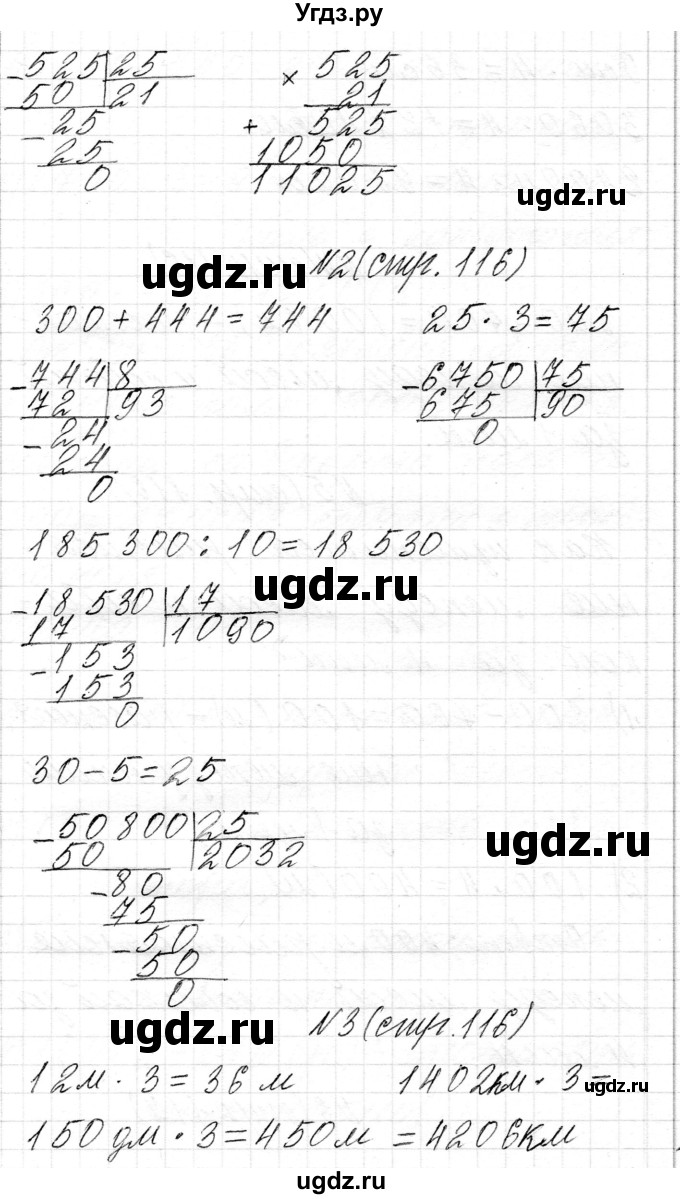 Угдз.ру
-525 25 × 525
50 21 21
-25 + 525
25 1050
0 11025
ugdz.ru
ugdz.ru
N2(стр. 116)
300 + 444 = 744 25 · 3 = 75
-744 8 -6750 75
72 93 675 90
-24 0
24
0
185 300 : 10 = 18 530
ugdz.ru
-18 530 17
17 1090
-153
153
0
30 - 5 = 25
-50800 25
50 2032
ugdz.ru
-80
75
-50
50
0
ugdz.ru
N3(стр. 116)
12м · 3 = 36 м 1402км · 3 =
ugdz.ru
150 дм · 3 = 450м = 4206км
ugdz.ru